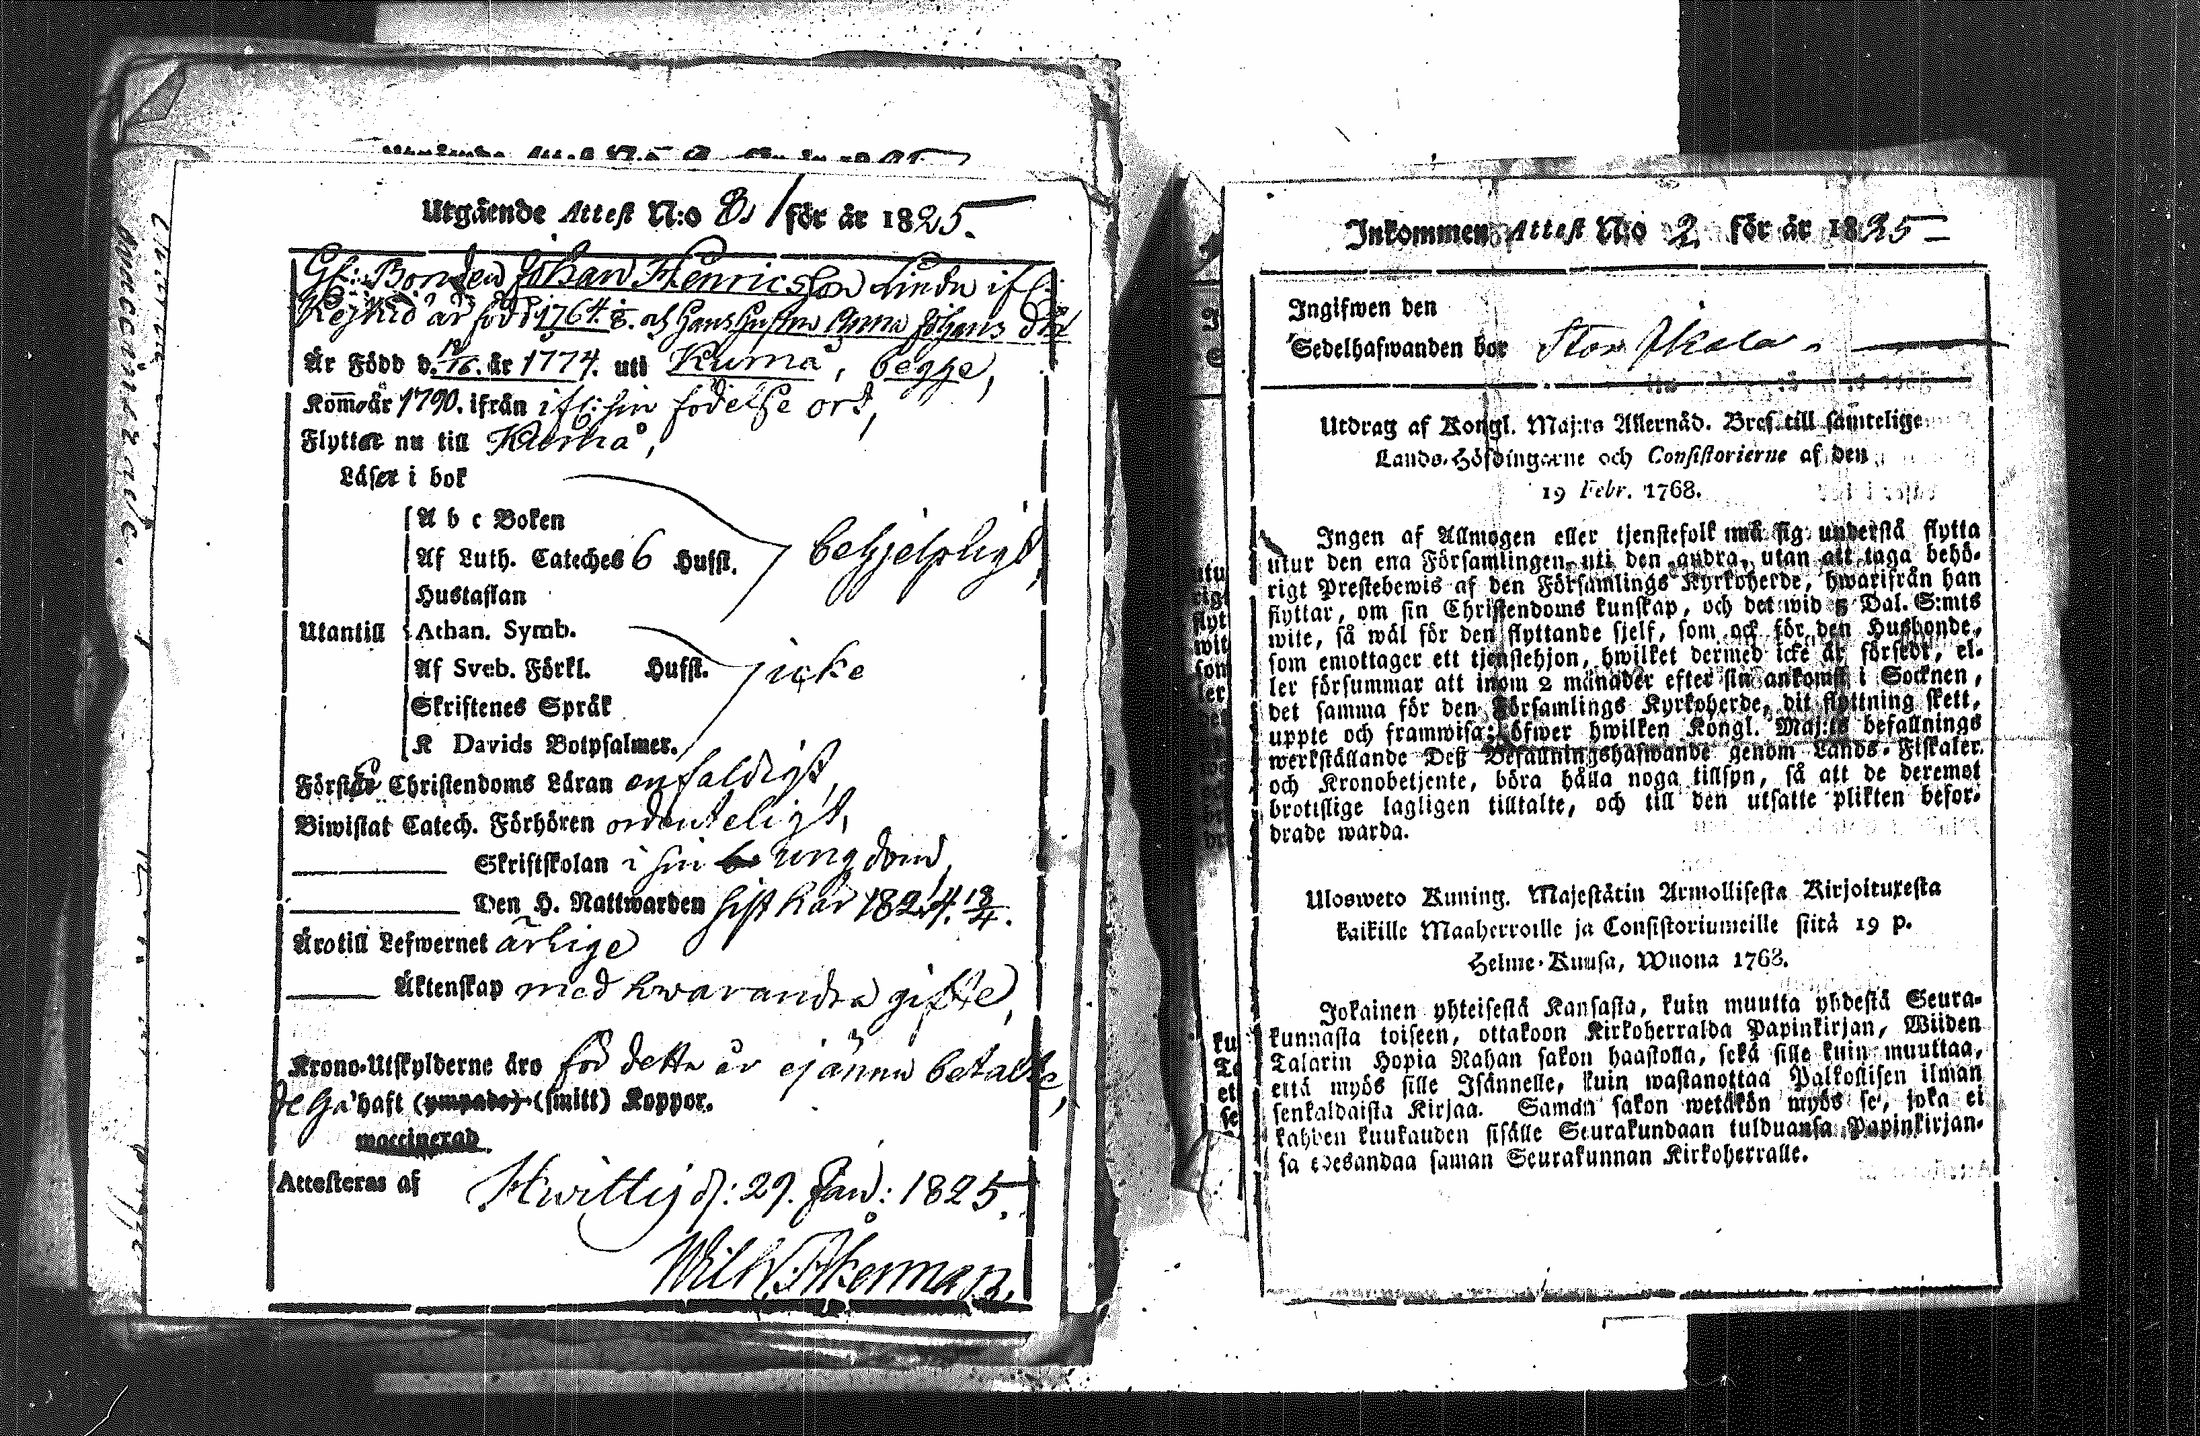 Utgående Attest N:o 8. för år 1825.
Gl: Bonden Johan Henricsson Lindu ifl:
Kejkid är född 1764. 1/8. och hans hustru Anna Johans dr
Är Född d. 19/16. år 1774. uti Kumå, begge,
Kom år 1790. ifrån ifl: sin födelse ort,
Flyttar nu till Kumå,
Läser i bok
A b c Boken
Af Luth. Cateches 6 Hufst. behjelpligt,
Hustaflan
Utantill Athan. Symb.
Af Sveb. Förkl. Hufst. icke
Skriftenes Språk
K Davids Botpsalmer.
Förstår Christendoms Läran enfaldigt,
Biwistat Catech. Förhören ordenteligt,
Skriftskolan i sin ungdom,
Den H. Nattwarden sist här 1824. 18/4.
Äro till Lefwernet ärlige
Äktenskap med hwarandra gifte,
Krono-Utskylderne äro för detta år ej ännu betalte,
de ha haft (ympade) (smitt) Koppor.
waccinerad
Attesteras af Hwittis d: 29. Jan: 1825.
Wilh. Åkerman.
Inkommen Attest No 2 för år 1825
Ingifwen den
Sedelhafwanden bor Stor Ikala
Utdrag af Kongl. Maj:ts Allernåd. Bref till samtelige
Lands-Höfdingarne och Consistorierne af den
19 Febr. 1768.
Ingen af Allmogen eller tjenstefolk må sig understå flytta
utur den ena Församlingen uti den andra, utan att taga behö-
rigt Prestebewis af den Församlings Kyrkoherde, hwarifrån han
flyttar, om sin Christendoms kunskap, och det wid 5 Dal. S:mts
wite, så wäl för den flyttande sjelf, som ock för den Husbonde,
som emottager ett tjenstehjon, hwilket dermed icke är försedt, el-
ler försummar att inom 2 månader efter sin ankomst i Socknen,
det samma för den Församlings Kyrkoherde, dit flyttning skett,
uppte och framwisa; öfwer hwilken Kongl. Maj:ts befallnings
werkställande Deß Befallningshafwande genom Lands-Fiskaler
och Kronobetjente, böra hålla noga tillsyn, så att de deremot
brottslige lagligen tilltalte, och till den utsatte plikten befor-
drade warda.
Ulosweto Kuning. Majestätin Armollisesta Kirjoituxesta
kaikille Maaherroille ja Consistoriumeille siitä 19 p.
Helme-Kuusa, Wuona 1768.
Jokainen yhteisestä Kansasta, kuin muutta yhdestä Seura-
kunnasta toiseen, ottakoon Kirkoherralda Papinkirjan, Wiiden
Talarin Hopia Rahan sakon haastolla, sekä sille kuin muuttaa,
että myös sille Isännelle, kuin wastanottaa Palkollisen ilman
senkaldaista Kirjaa. Saman sakon wetäkön myös se, joka ei
kahden kuukauden sisälle Seurakundaan tulduansa Papinkirjan-
sa edesandaa saman Seurakunnan Kirkoherralle.